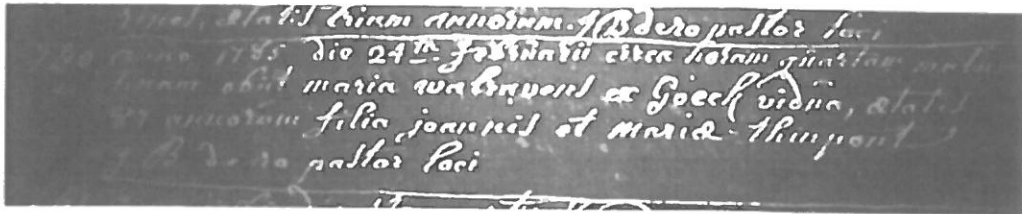 ætatis trium annorum. J B dero pastor loci
anno 1785 die 24ta februarii circa horam quartam
obiit maria walravens ex Goeck vidua, ætatis
87 annorum filia joannis et mariæ thinpont
J B dero pastor loci